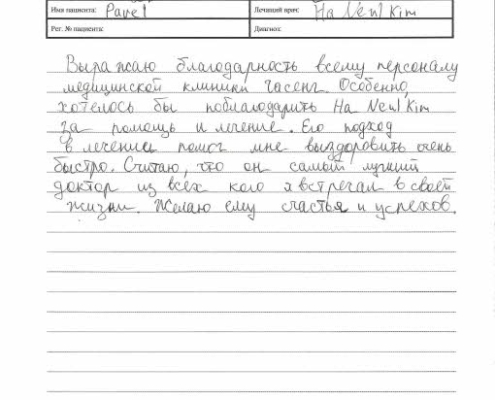 Имя пациента: Pavel Лечащий врач: Ha Newl Kim
Рег. № пациента: Диагноз:
Выражаю благодарность всему персоналу
медицинской клиники Часенг. Особенно,
хотелось бы поблагодарить Ha Newl Kim
за помощь и лечение. Его подход
в лечении помог мне выздоровить очень
быстро. Считаю, что он самый лучший
доктор из всех кого я встречал в своей
жизни. Желаю ему счастья и успехов.